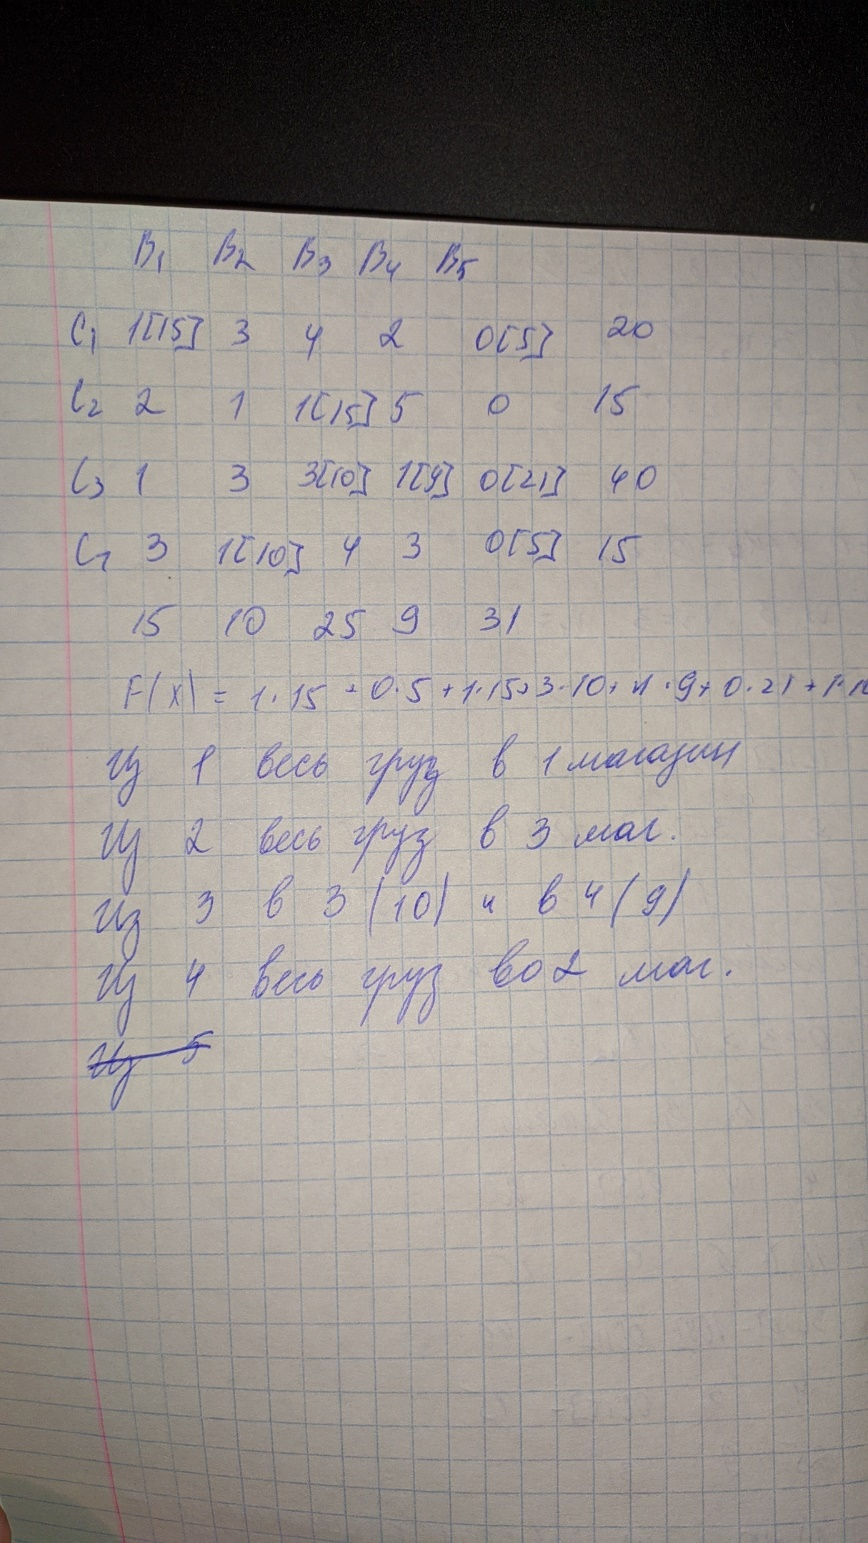 B1 B2 B3 B4 B5
C1 1[15] 3 4 2 0[5] 20
C2 2 1 1[15] 5 0 15
C3 1 3 3[10] 1[9] 0[21] 40
C4 3 1[10] 4 3 0[5] 15
15 10 25 9 31
F(x) = 1·15 + 0·5 + 1·15 + 3·10 + 1·9 + 0·21 + 1·10
Из 1 весь груз в 1 магазин
Из 2 весь груз в 3 маг.
Из 3 в 3 (10) и в 4 (9)
Из 4 весь груз во 2 маг.
Из 5